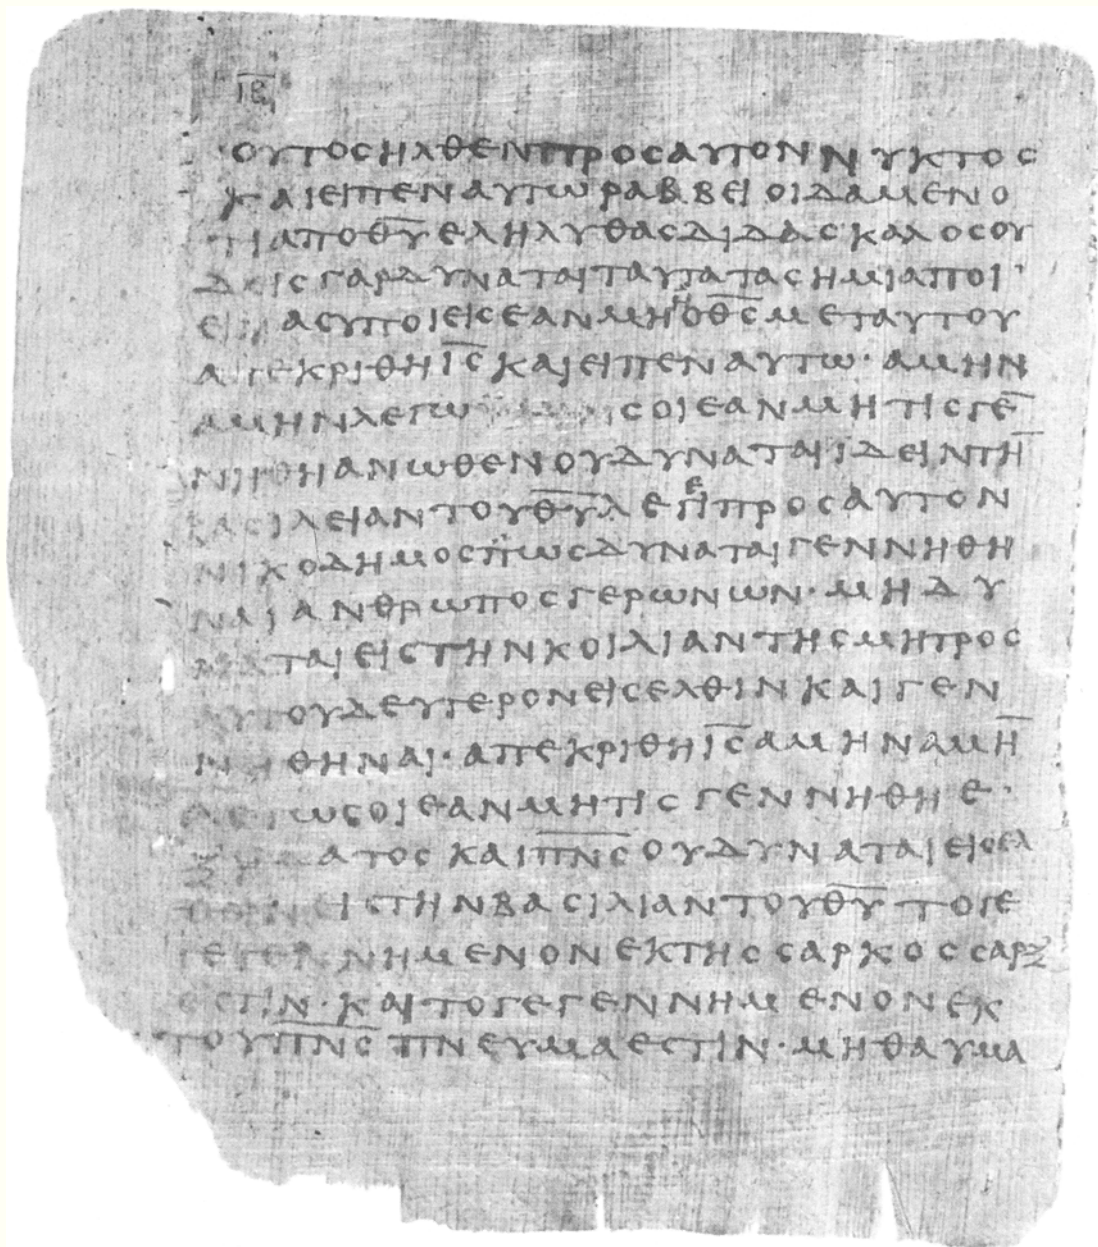 ΙΒ
ΟΥΤΟΣ ΗΛΘΕΝ ΠΡΟΣ ΑΥΤΟΝ ΝΥΚΤΟΣ
ΚΑΙ ΕΙΠΕΝ ΑΥΤΩ ΡΑΒΒΕΙ ΟΙΔΑΜΕΝ Ο
ΤΙ ΑΠΟ Θ̅Υ̅ ΕΛΗΛΥΘΑΣ ΔΙΔΑΣΚΑΛΟΣ ΟΥ
ΔΕΙΣ ΓΑΡ ΔΥΝΑΤΑΙ ΤΑΥΤΑ ΤΑ ΣΗΜΙΑ ΠΟΙ
ΑΣΥ ΠΟΙΕΙΣ ΕΑΝ ΜΗ Η Ο Θ̅Σ̅ ΜΕΤ ΑΥΤΟΥ
ΑΠΕΚΡΙΘΗ Ι̅Σ̅ ΚΑΙ ΕΙΠΕΝ ΑΥΤΩ· ΑΜΗΝ
ΑΜΗΝ ΛΕΓΩ ΣΟΙ ΕΑΝ ΜΗ ΤΙΣ ΓΕ̅
ΝΗΘΗ ΑΝΩΘΕΝ ΟΥ ΔΥΝΑΤΑΙ ΙΔΕΙΝ ΤΗ̅
ΒΑΣΙΛΕΙΑΝ ΤΟΥ Θ̅Υ̅ ΛΕΓΕΙ ΠΡΟΣ ΑΥΤΟΝ
ΝΙΚΟΔΗΜΟΣ ΠΩΣ ΔΥΝΑΤΑΙ ΓΕΝΝΗΘΗ
ΝΑΙ ΑΝΘΡΩΠΟΣ ΓΕΡΩΝ ΩΝ· ΜΗ ΔΥ
ΝΑΤΑΙ ΕΙΣ ΤΗΝ ΚΟΙΛΙΑΝ ΤΗΣ ΜΗΤΡΟΣ
ΑΥΤΟΥ ΔΕΥΤΕΡΟΝ ΕΙΣΕΛΘΙΝ ΚΑΙ ΓΕΝ
ΝΗΘΗΝΑΙ· ΑΠΕΚΡΙΘΗ Ι̅Σ̅ ΑΜΗΝ ΑΜΗ̅
ΛΕΓΩ ΣΟΙ ΕΑΝ ΜΗ ΤΙΣ ΓΕΝΝΗΘΗ Ε
ΞΥΔΑΤΟΣ ΚΑΙ Π̅Ν̅Σ̅ ΟΥ ΔΥΝΑΤΑΙ ΕΙΣΕΛ
ΘΕΙΝ ΕΙΣ ΤΗΝ ΒΑΣΙΛΙΑΝ ΤΟΥ Θ̅Υ̅ ΤΟ ΓΕ
ΓΕΝΝΗΜΕΝΟΝ ΕΚ ΤΗΣ ΣΑΡΚΟΣ ΣΑΡΞ
ΕΣΤΙΝ· ΚΑΙ ΤΟ ΓΕΓΕΝΝΗΜΕΝΟΝ ΕΚ
ΤΟΥ Π̅Ν̅Σ̅ ΠΝΕΥΜΑ ΕΣΤΙΝ· ΜΗ ΘΑΥΜΑ